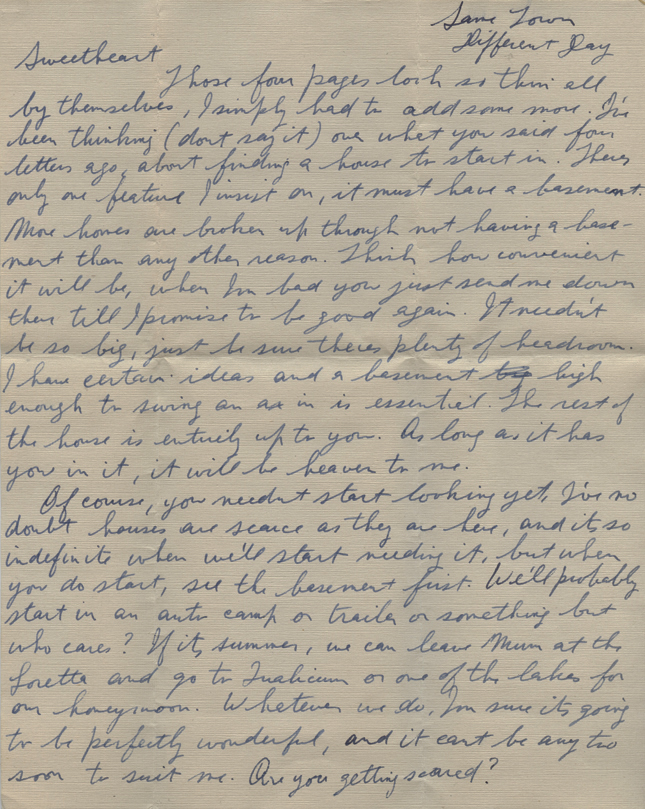 Same Town
Different Day
Sweetheart
Those four pages look so thin all
by themselves, I simply had to add some more. I've
been thinking (dont say it) over what you said four
letters ago, about finding a house to start in. Theres
only one feature I insist on, it must have a basement.
More homes are broken up through not having a base-
ment than any other reason. Think how convenient
it will be, when I'm bad you just send me down
there till I promise to be good again. It needn't
be so big, just be sure theres plenty of headroom.
I have certain ideas and a basement high
enough to swing an ax in is essential. The rest of
the house is entirely up to you. As long as it has
you in it, it will be heaven to me.
Of course, you needn't start looking yet, I've no
doubt houses are scarce as they are here, and its so
indefinite when we'll start needing it, but when
you do start, see the basement first. We'll probably
start in an auto camp or trailer or something but
who cares? If its summer, we can leave Mum at the
Loretta and go to Qualicum or one of the lakes for
our honeymoon. Whatever we do, I'm sure its going
to be perfectly wonderful, and it cant be any too
soon to suit me. Are you getting scared?